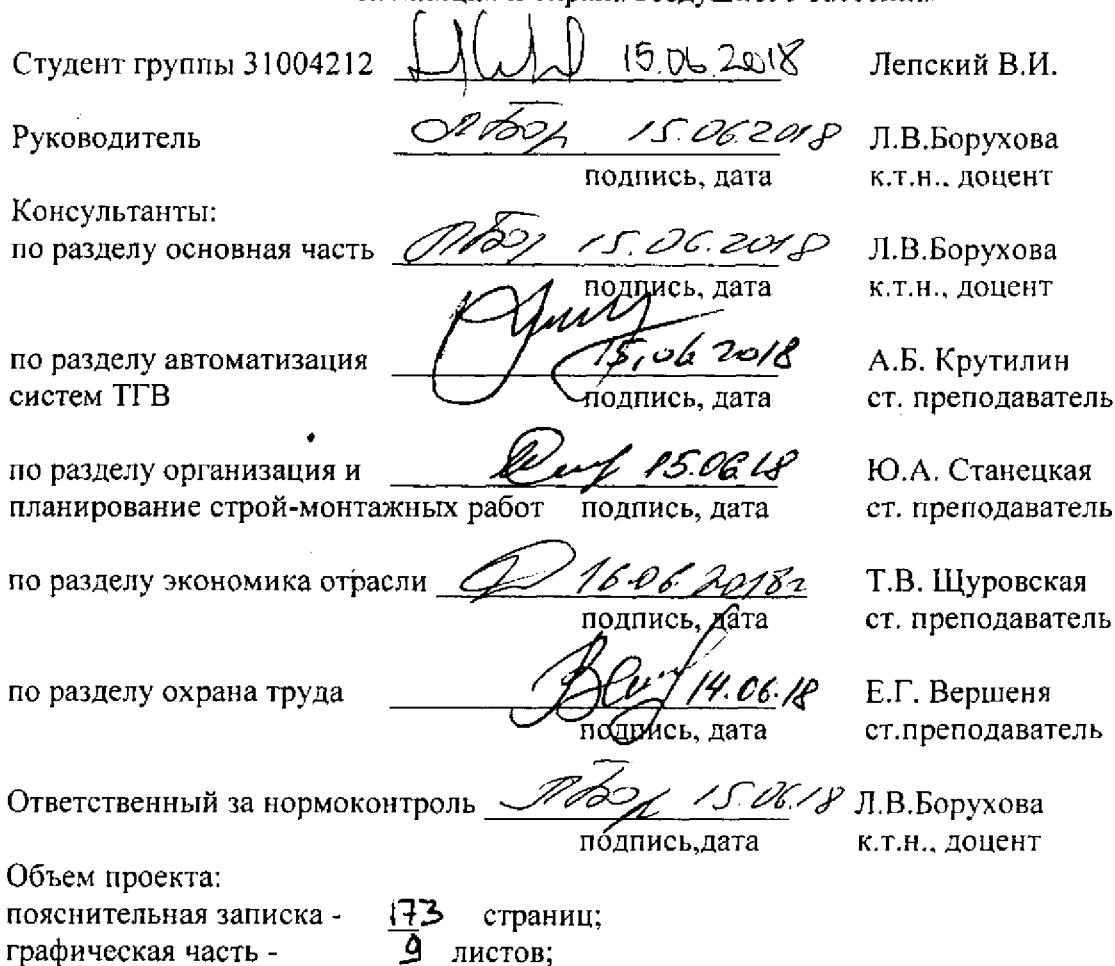 Студент группы 31004212 15.06.2018 Лепский В.И.
Руководитель 15.06.2018 Л.В.Борухова
подпись, дата к.т.н., доцент
Консультанты:
по разделу основная часть 15.06.2018 Л.В.Борухова
подпись, дата к.т.н., доцент
по разделу автоматизация 15,06 2018 А.Б. Крутилин
систем ТГВ подпись, дата ст. преподаватель
по разделу организация и 15.06.18 Ю.А. Станецкая
планирование строй-монтажных работ подпись, дата ст. преподаватель
по разделу экономика отрасли 16.06.2018г Т.В. Щуровская
подпись, дата ст. преподаватель
по разделу охрана труда 14.06.18 Е.Г. Вершеня
подпись, дата ст.преподаватель
Ответственный за нормоконтроль 15.06.18 Л.В.Борухова
подпись,дата к.т.н., доцент
Объем проекта:
пояснительная записка - 173 страниц;
графическая часть - 9 листов;